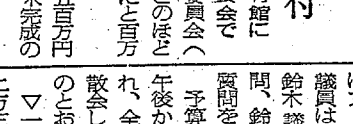 村
館に
会で
員会へ
このほど
と百万
五百万円
未完成の
議員は
鈴木議
問、鈴
質問を
予算
午後か
れ、全
散会し
▽一
のとお